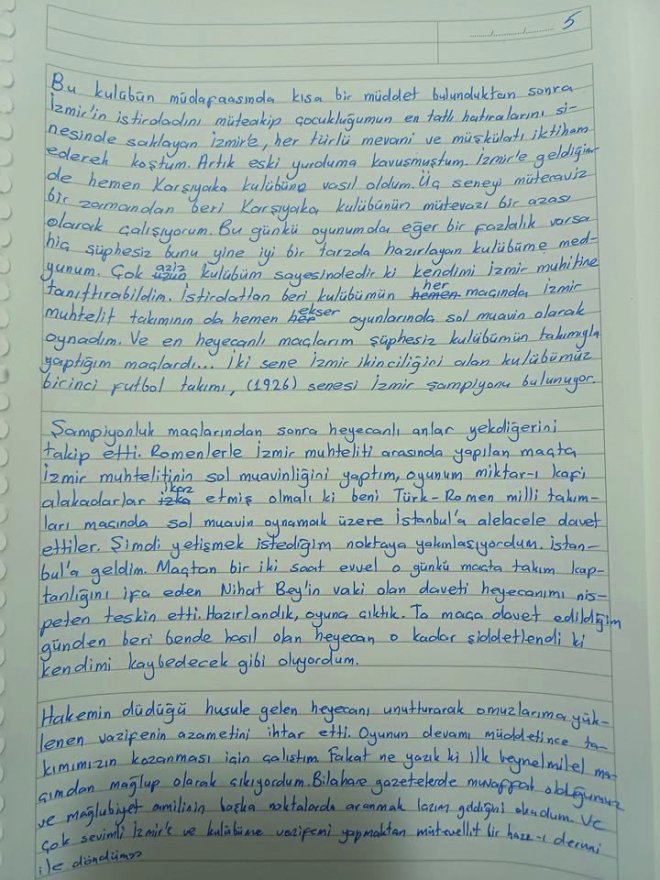 5
Bu kulübün müdafaasında kısa bir müddet bulunduktan sonra
İzmir'in istirdadını müteakip çocukluğumun en tatlı hatıralarını si-
nesinde saklayan İzmir'e, her türlü mevani ve müşkülatı iktiham
ederek koştum. Artık eski yurduma kavuşmuştum. İzmir'e geldiğim-
de hemen Karşıyaka kulübüne vasıl oldum. Üç seneyi mütecaviz
bir zamandan beri Karşıyaka kulübünün mütevazı bir azası
olarak çalışıyorum. Bu günkü oyunumda eğer bir fazlalık varsa
hiç şüphesiz bunu yine iyi bir tarzda hazırlayan kulübüme med-
yunum. Çok aziz kulübüm sayesindedir ki kendimi İzmir muhitine
tanıttırabildim. İstirdattan beri kulübümün her maçında İzmir
muhtelit takımının da hemen ekser oyunlarında sol muavin olarak
oynadım. Ve en heyecanlı maçlarım şüphesiz kulübümün takımıyla
yaptığım maçlardı... İki sene İzmir ikinciliğini alan kulübümüz
birinci futbol takımı, (1926) senesi İzmir şampiyonu bulunuyor.
Şampiyonluk maçlarından sonra heyecanlı anlar yekdiğerini
takip etti. Romenlerle İzmir muhteliti arasında yapılan maçta
İzmir muhtelitinin sol muavinliğini yaptım, oyunum miktar-ı kafi
alakadarlar ikaz etmiş olmalı ki beni Türk-Romen milli takım-
ları maçında sol muavin oynamak üzere İstanbul'a alelacele davet
ettiler. Şimdi yetişmek istediğim noktaya yakınlaşıyordum. İstan-
bul'a geldim. Maçtan bir iki saat evvel o günkü maçta takım kap-
tanlığını ifa eden Nihat Bey'in vaki olan daveti heyecanımı nis-
peten teskin etti. Hazırlandık, oyuna çıktık. Ta maça davet edildiğim
günden beri bende hasıl olan heyecan o kadar şiddetlendi ki
kendimi kaybedecek gibi oluyordum.
Hakemin düdüğü husule gelen heyecanı unutturarak omuzlarıma yük-
lenen vazifenin azametini ihtar etti. Oyunun devamı müddetince ta-
kımımızın kazanması için çalıştım. Fakat ne yazık ki ilk beynelmilel ma-
çımdan mağlup olarak çıkıyordum. Bilahare gazetelerde muvaffak olduğumuz
ve mağlubiyet amilinin başka noktalarda aranmak lazım geldiğini okudum. Ve
çok sevimli İzmir'e ve kulübüme vazifemi yapmaktan mütevellit bir hazz-ı deruni
ile döndüm>>